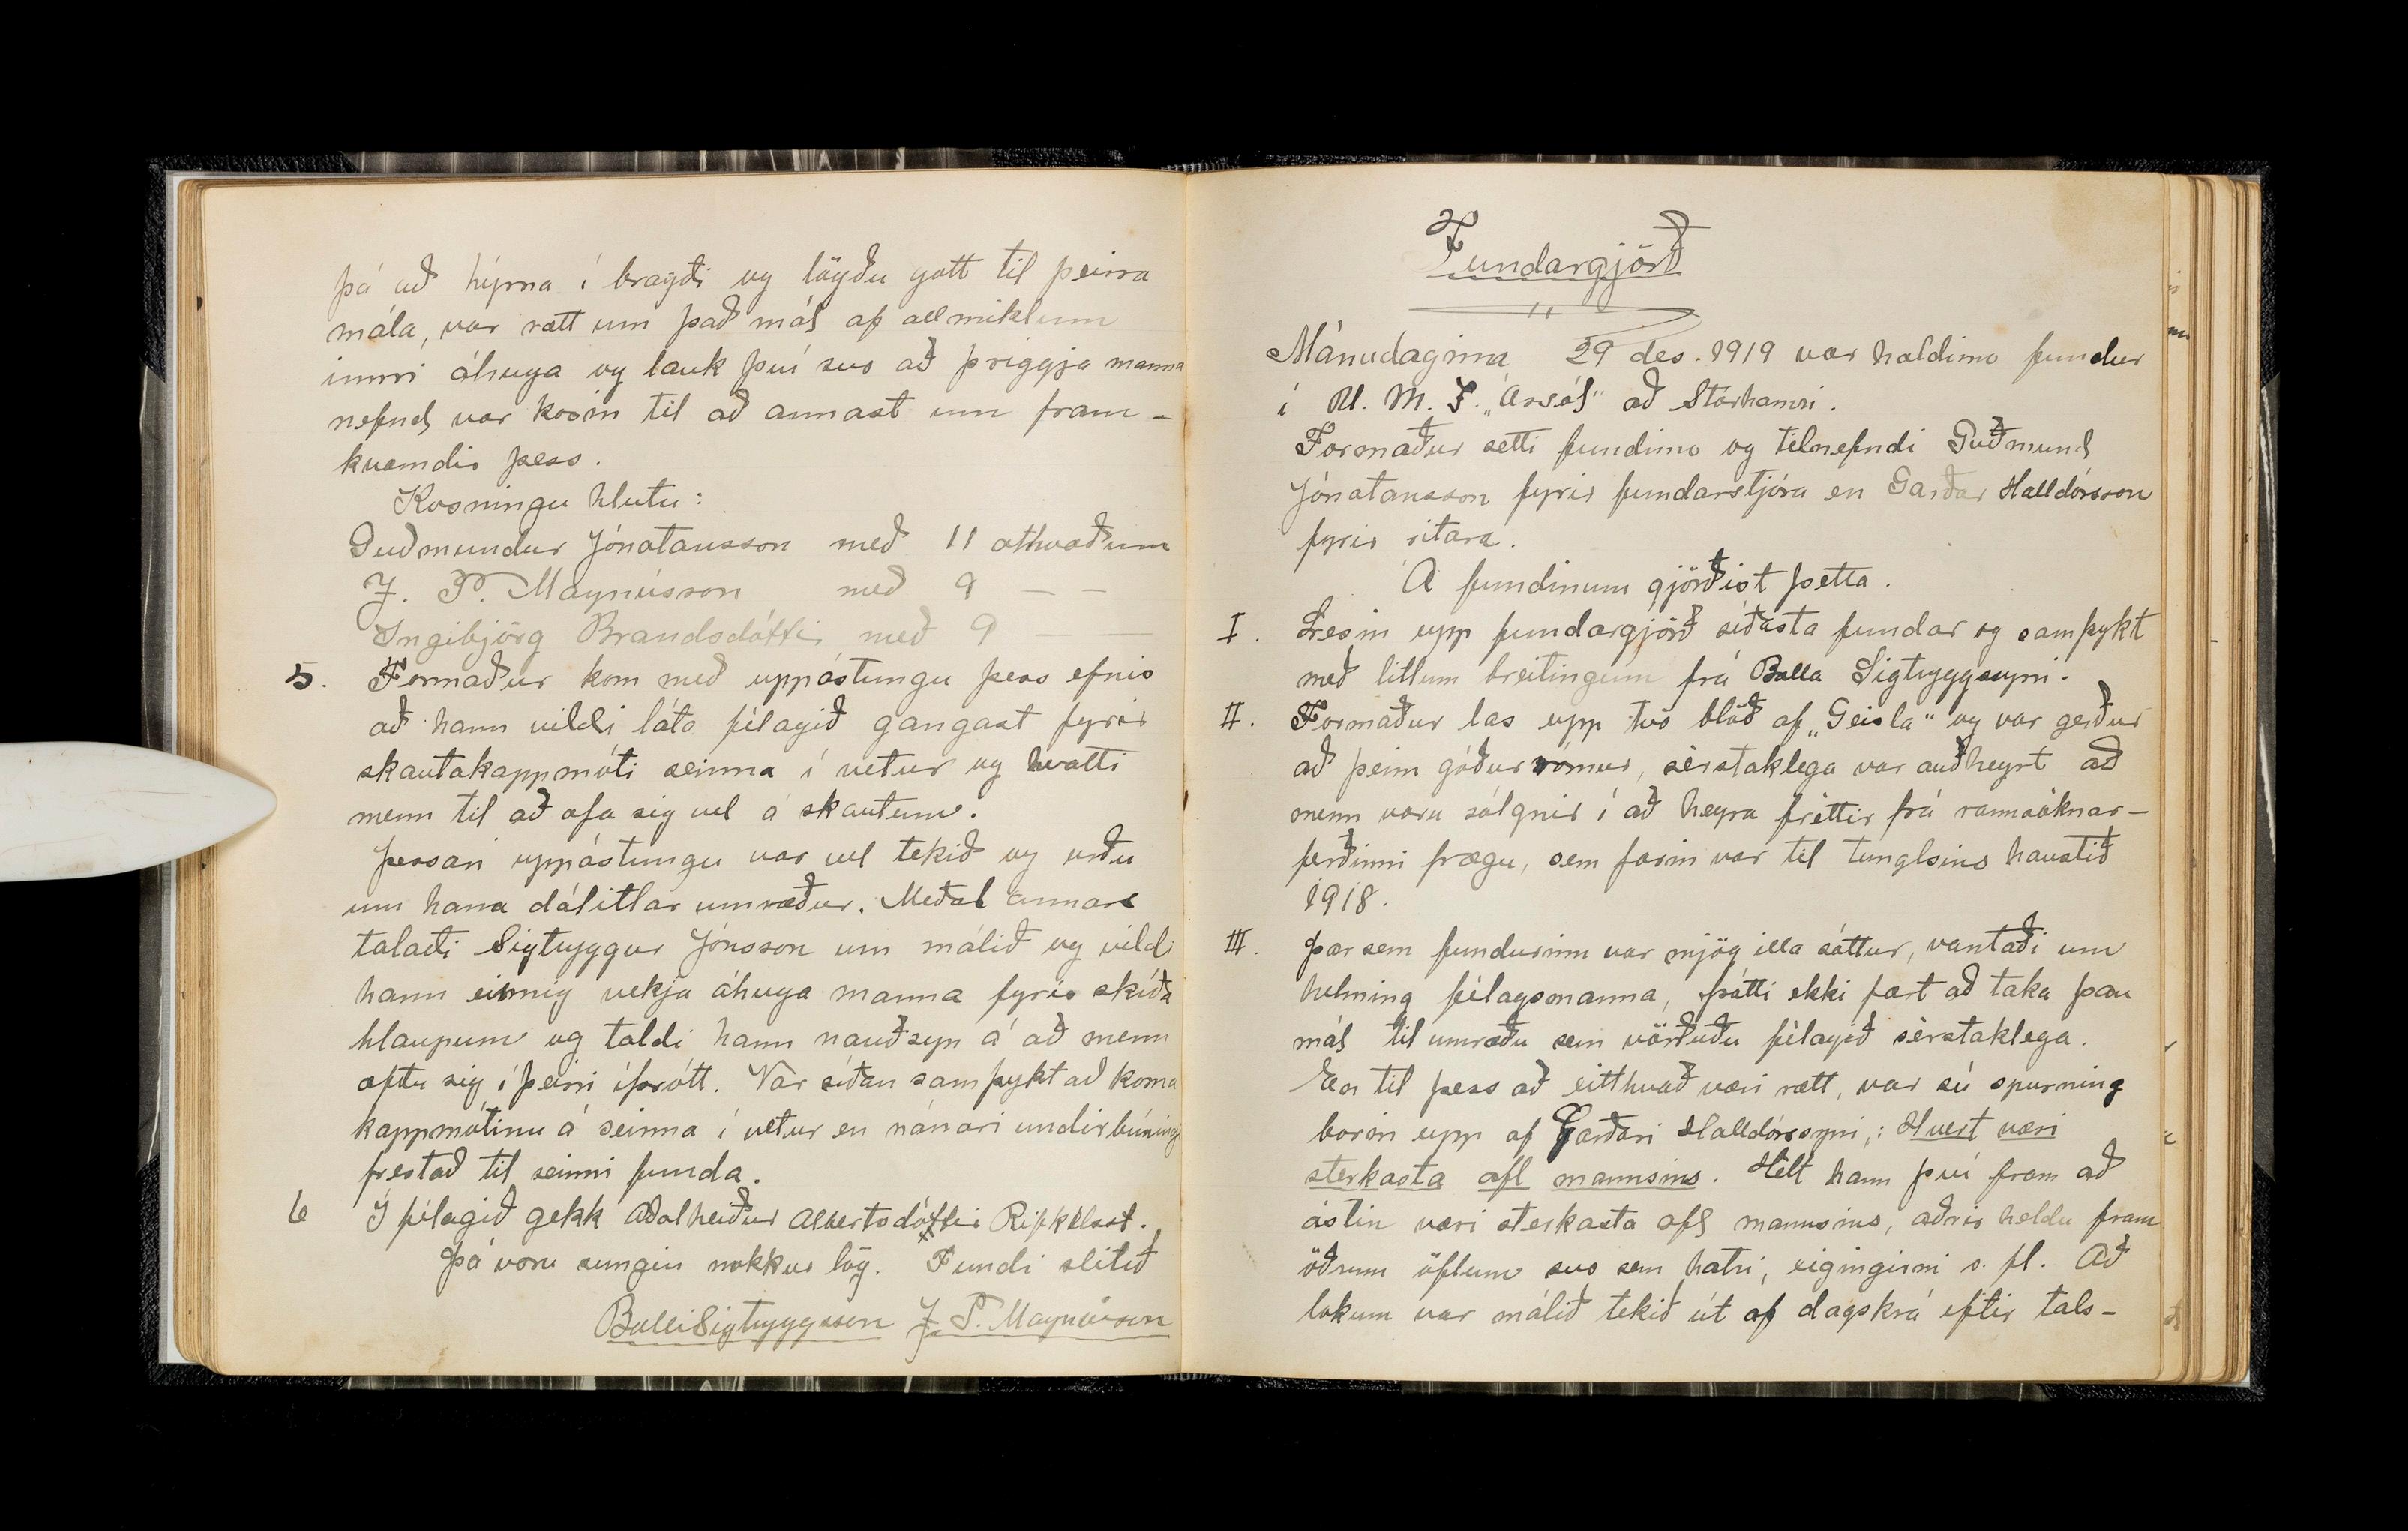 þá að hýrna í bragði og lögðu gott til þeirra
mála, var rætt um það mál af allmiklum
innri áhuga og lauk því svo að þriggja manna
nefnd var kosin til að annast um fram-
kvæmdir þess.
Kosningu hlutu:
Guðmundur Jónatansson með 11 atkvæðum
J. P. Magnússon með 9 — —
Ingibjörg Brandsdóttir með 9
5. Formaður kom með uppástungu þess efnis
að hann vildi láta félagið gangast fyrir
skautakappmóti seinna í vetur og hvatti
menn til að æfa sig vel á skautum.
Þessari uppástungu var vel tekið og urðu
um hana dálitlar umræður. Meðal annars
talaði Sigtryggur Jónsson um málið og vildi
hann einnig vekja áhuga manna fyrir skíða
hlaupum og taldi hann nauðsyn á að menn
æfðu sig í þeirri íþrótt. Var síðan samþykt að koma
kappmótinu á seinna í vetur en nánari undirbúningi
frestað til seinni funda.
6 Í félagið gekk Aðalheiður Albertsdóttir Rifkelsst.
Þá voru sungin nokkur lög. Fundi slitið
Balli Sigtryggsson J. P. Magnússon
Fundargjörð
Mánudaginn 29 des. 1919 var haldinn fundur
í U. M. F. „Ársól" að Stórhamri.
Formaður setti fundinn og tilnefndi Guðmund
Jónatansson fyrir fundarstjóra en Garðar Halldórsson
fyrir ritara.
Á fundinum gjörðist þetta.
I. Lesin upp fundargjörð síðasta fundar og samþykt
með litlum breitingum frá Balla Sigtryggssyni.
II. Formaður las upp tvö blöð af „Geisla" og var gerður
að þeim góður rómur, sérstaklega var auðheyrt að
menn voru sólgnir í að heyra fréttir frá rannsóknar-
ferðinni frægu, sem farin var til tunglsins haustið
1918.
III. Þar sem fundurinn var mjög illa sóttur, vantaði um
helming félagsmanna, þótti ekki fært að taka þau
mál til umræðu sem vörðuðu félagið sérstaklega.
En til þess að eitthvað væri rætt, var sú spurning
borin upp af Garðari Halldórssyni,: Hvert væri
sterkasta afl mannsins. Hélt hann því fram að
ástin væri sterkasta afl mannsins, aðrir heldu fram
öðrum öflum svo sem hatri, eigingirni o. fl. Að
lokum var málið tekið út af dagskrá eftir tals-